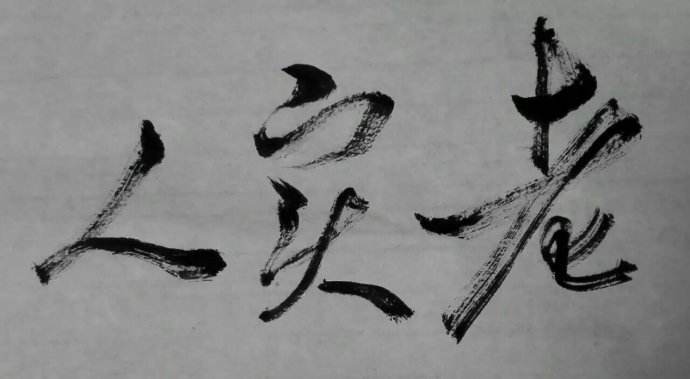 老实人